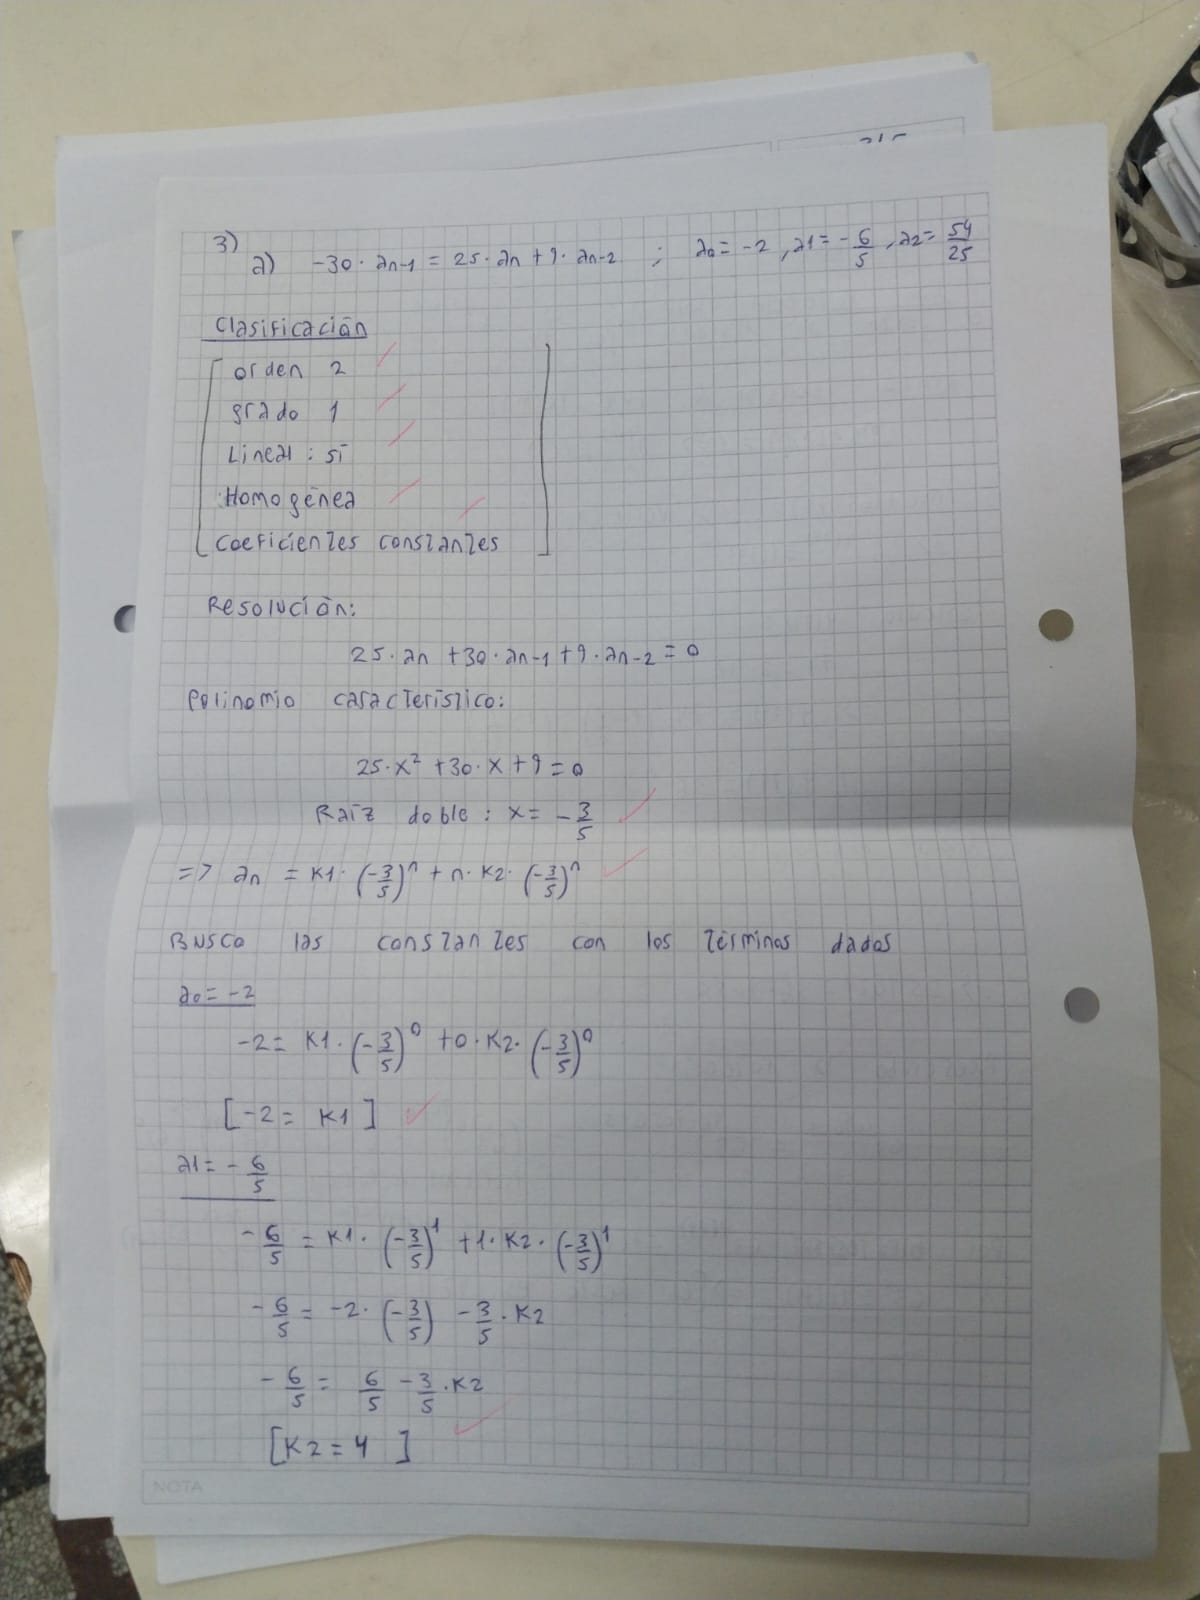 3)
a) -30·an-1 = 25·an + 9·an-2 ; a0 = -2, a1 = -6/5, a2 = 54/25
Clasificación
orden 2
grado 1
Lineal: sí
Homogénea
Coeficientes constantes
Resolución:
25·an + 30·an-1 + 9·an-2 = 0
Polinomio característico:
25·x² + 30·x + 9 = 0
Raíz doble: x = -3/5
=> an = K1·(-3/5)^n + n·K2·(-3/5)^n
Busco las constantes con los términos dados
a0 = -2
-2 = K1·(-3/5)^0 + 0·K2·(-3/5)^0
[-2 = K1]
a1 = -6/5
-6/5 = K1·(-3/5)^1 + 1·K2·(-3/5)^1
-6/5 = -2·(-3/5) -3/5·K2
-6/5 = 6/5 -3/5·K2
[K2 = 4]
NOTA